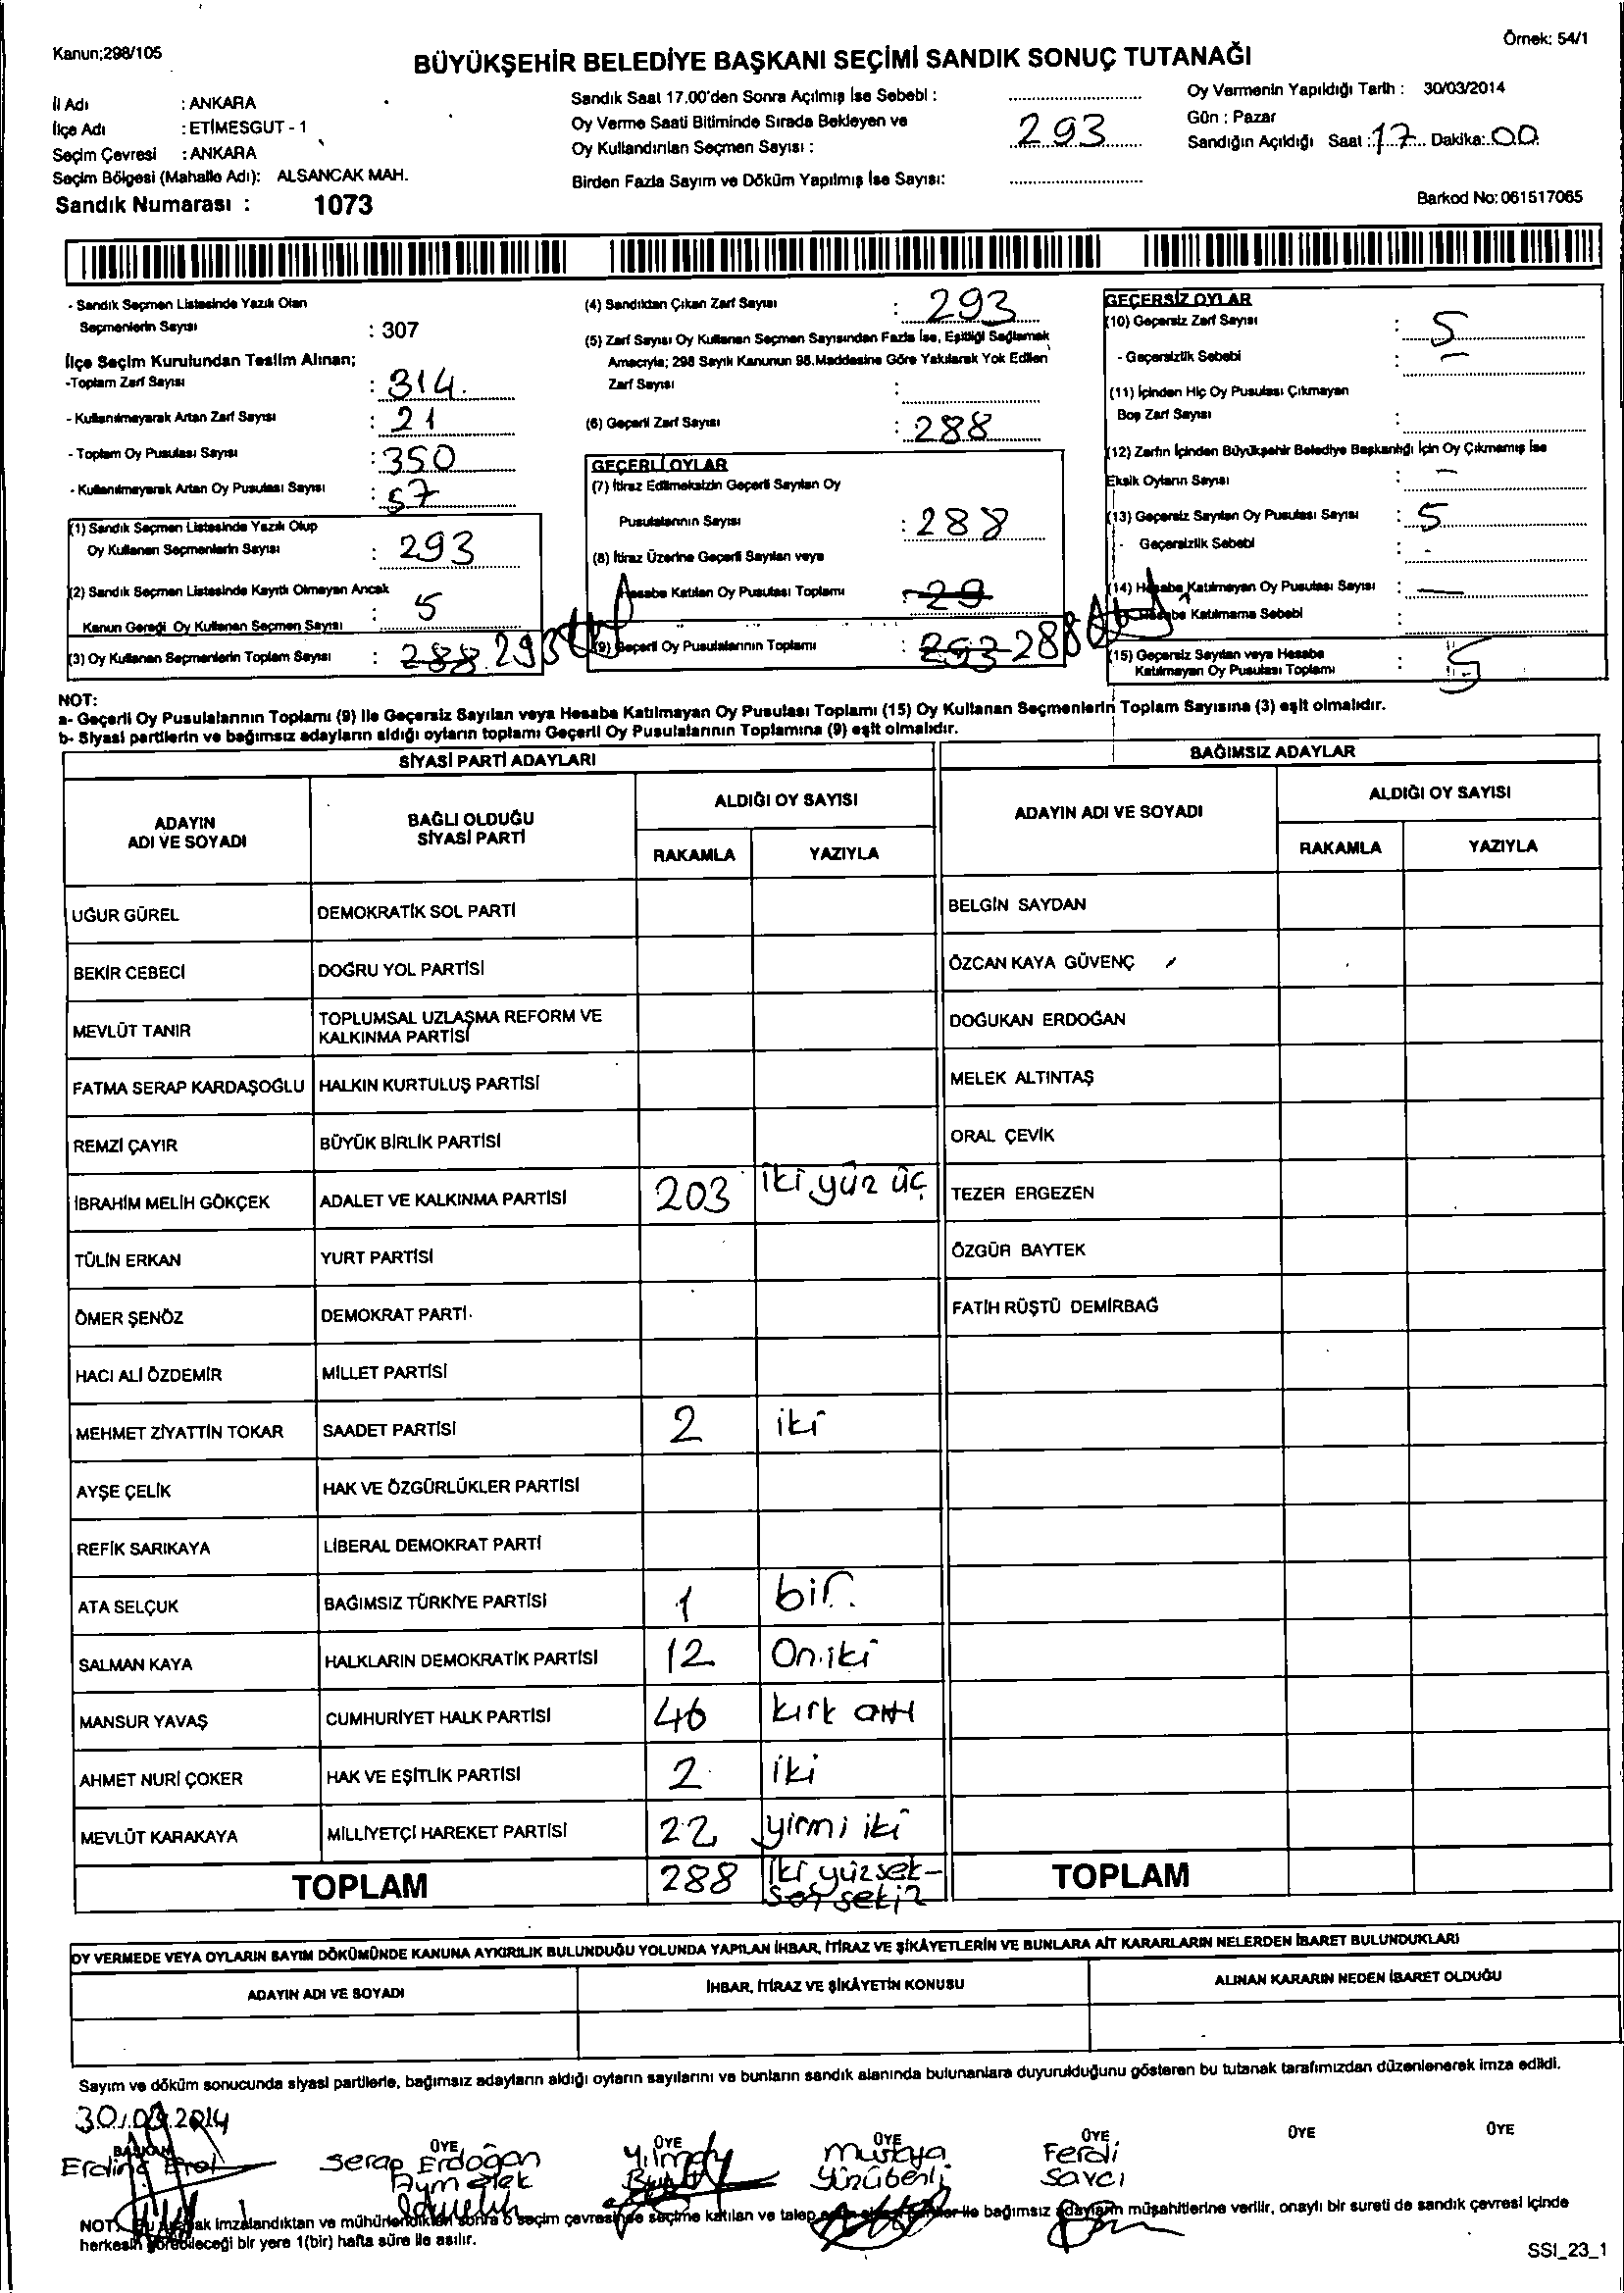 Kanun;298/105
Örnek: 54/1
BÜYÜKŞEHİR BELEDİYE BAŞKANI SEÇİMİ SANDIK SONUÇ TUTANAĞI
İl Adı : ANKARA
İlçe Adı : ETİMESGUT - 1
Seçim Çevresi : ANKARA
Seçim Bölgesi (Mahalle Adı): ALSANCAK MAH.
Sandık Numarası : 1073
Sandık Saat 17.00'den Sonra Açılmış İse Sebebi :
Oy Verme Saati Bitiminde Sırada Bekleyen ve
Oy Kullandırılan Seçmen Sayısı : 293
Birden Fazla Sayım ve Döküm Yapılmış İse Sayısı:
Oy Vermenin Yapıldığı Tarih : 30/03/2014
Gün : Pazar
Sandığın Açıldığı Saat : 17 Dakika: 00
Barkod No: 061517065
- Sandık Seçmen Listesinde Yazılı Olan
Seçmenlerin Sayısı : 307
İlçe Seçim Kurulundan Teslim Alınan;
-Toplam Zarf Sayısı : 314
- Kullanılmayarak Artan Zarf Sayısı : 21
- Toplam Oy Pusulası Sayısı : 350
- Kullanılmayarak Artan Oy Pusulası Sayısı : 57
(1) Sandık Seçmen Listesinde Yazılı Olup
Oy Kullanan Seçmenlerin Sayısı : 293
(2) Sandık Seçmen Listesinde Kayıtlı Olmayan Ancak
Kanun Gereği Oy Kullanan Seçmen Sayısı : 5
(3) Oy Kullanan Seçmenlerin Toplam Sayısı : 288 293
(4) Sandıktan Çıkan Zarf Sayısı : 293
(5) Zarf Sayısı Oy Kullanan Seçmen Sayısından Fazla İse, Eşitliği Sağlamak
Amacıyla; 298 Sayılı Kanunun 98.Maddesine Göre Yakılarak Yok Edilen
Zarf Sayısı :
(6) Geçerli Zarf Sayısı : 288
GEÇERLİ OYLAR
(7) İtiraz Edilmeksizin Geçerli Sayılan Oy
Pusulalarının Sayısı : 288
(8) İtiraz Üzerine Geçerli Sayılan veya
Hesaba Katılan Oy Pusulası Toplamı : 29
(9) Geçerli Oy Pusulalarının Toplamı : 293 288
GEÇERSİZ OYLAR
(10) Geçersiz Zarf Sayısı : 5
- Geçersizlik Sebebi : -
(11) İçinden Hiç Oy Pusulası Çıkmayan
Boş Zarf Sayısı :
(12) Zarfın İçinden Büyükşehir Belediye Başkanlığı İçin Oy Çıkmamış İse
Eksik Oyların Sayısı : -
(13) Geçersiz Sayılan Oy Pusulası Sayısı : 5
- Geçersizlik Sebebi : -
(14) Hesaba Katılmayan Oy Pusulası Sayısı : -
- Hesaba Katılmama Sebebi :
(15) Geçersiz Sayılan veya Hesaba
Katılmayan Oy Pusulası Toplamı : 5
NOT:
a- Geçerli Oy Pusulalarının Toplamı (9) ile Geçersiz Sayılan veya Hesaba Katılmayan Oy Pusulası Toplamı (15) Oy Kullanan Seçmenlerin Toplam Sayısına (3) eşit olmalıdır.
b- Siyasi partilerin ve bağımsız adayların aldığı oyların toplamı Geçerli Oy Pusulalarının Toplamına (9) eşit olmalıdır.
SİYASİ PARTİ ADAYLARI
BAĞIMSIZ ADAYLAR
ADAYIN
ADI VE SOYADI
BAĞLI OLDUĞU
SİYASİ PARTİ
ALDIĞI OY SAYISI
RAKAMLA YAZIYLA
ADAYIN ADI VE SOYADI
ALDIĞI OY SAYISI
RAKAMLA YAZIYLA
UĞUR GÜREL DEMOKRATİK SOL PARTİ BELGİN SAYDAN
BEKİR CEBECİ DOĞRU YOL PARTİSİ ÖZCAN KAYA GÜVENÇ
MEVLÜT TANIR TOPLUMSAL UZLAŞMA REFORM VE
KALKINMA PARTİSİ DOĞUKAN ERDOĞAN
FATMA SERAP KARDAŞOĞLU HALKIN KURTULUŞ PARTİSİ MELEK ALTINTAŞ
REMZİ ÇAYIR BÜYÜK BİRLİK PARTİSİ ORAL ÇEVİK
İBRAHİM MELİH GÖKÇEK ADALET VE KALKINMA PARTİSİ 203 iki yüz üç TEZER ERGEZEN
TÜLİN ERKAN YURT PARTİSİ ÖZGÜR BAYTEK
ÖMER ŞENÖZ DEMOKRAT PARTİ FATİH RÜŞTÜ DEMİRBAĞ
HACI ALİ ÖZDEMİR MİLLET PARTİSİ
MEHMET ZİYATTİN TOKAR SAADET PARTİSİ 2 iki
AYŞE ÇELİK HAK VE ÖZGÜRLÜKLER PARTİSİ
REFİK SARIKAYA LİBERAL DEMOKRAT PARTİ
ATA SELÇUK BAĞIMSIZ TÜRKİYE PARTİSİ 1 bir
SALMAN KAYA HALKLARIN DEMOKRATİK PARTİSİ 12 On iki
MANSUR YAVAŞ CUMHURİYET HALK PARTİSİ 46 kırk altı
AHMET NURİ ÇOKER HAK VE EŞİTLİK PARTİSİ 2 iki
MEVLÜT KARAKAYA MİLLİYETÇİ HAREKET PARTİSİ 22 yirmi iki
TOPLAM 288 iki yüz sek-
sen sekiz TOPLAM
OY VERMEDE VEYA OYLARIN SAYIM DÖKÜMÜNDE KANUNA AYKIRILIK BULUNDUĞU YOLUNDA YAPILAN İHBAR, İTİRAZ VE ŞİKÂYETLERİN VE BUNLARA AİT KARARLARIN NELERDEN İBARET BULUNDUKLARI
ADAYIN ADI VE SOYADI İHBAR, İTİRAZ VE ŞİKÂYETİN KONUSU ALINAN KARARIN NEDEN İBARET OLDUĞU
Sayım ve döküm sonucunda siyasi partilerle, bağımsız adayların aldığı oyların sayılarını ve bunların sandık alanında bulunanlara duyurulduğunu gösteren bu tutanak tarafımızdan düzenlenerek imza edildi.
30.03.2014
BAŞKAN ÜYE ÜYE ÜYE ÜYE ÜYE ÜYE
Erdinç Erol Serap Erdoğan Yılmaz Mustafa Ferdi
Aymelek Yüzübenli Savcı
NOT: Bu tutanak imzalandıktan ve mühürlendikten sonra o seçim çevresinde seçime katılan ve talep eden siyasi partiler ile bağımsız adayların müşahitlerine verilir, onaylı bir sureti de sandık çevresi içinde
herkesin görebileceği bir yere 1(bir) hafta süre ile asılır.
SSI_23_1